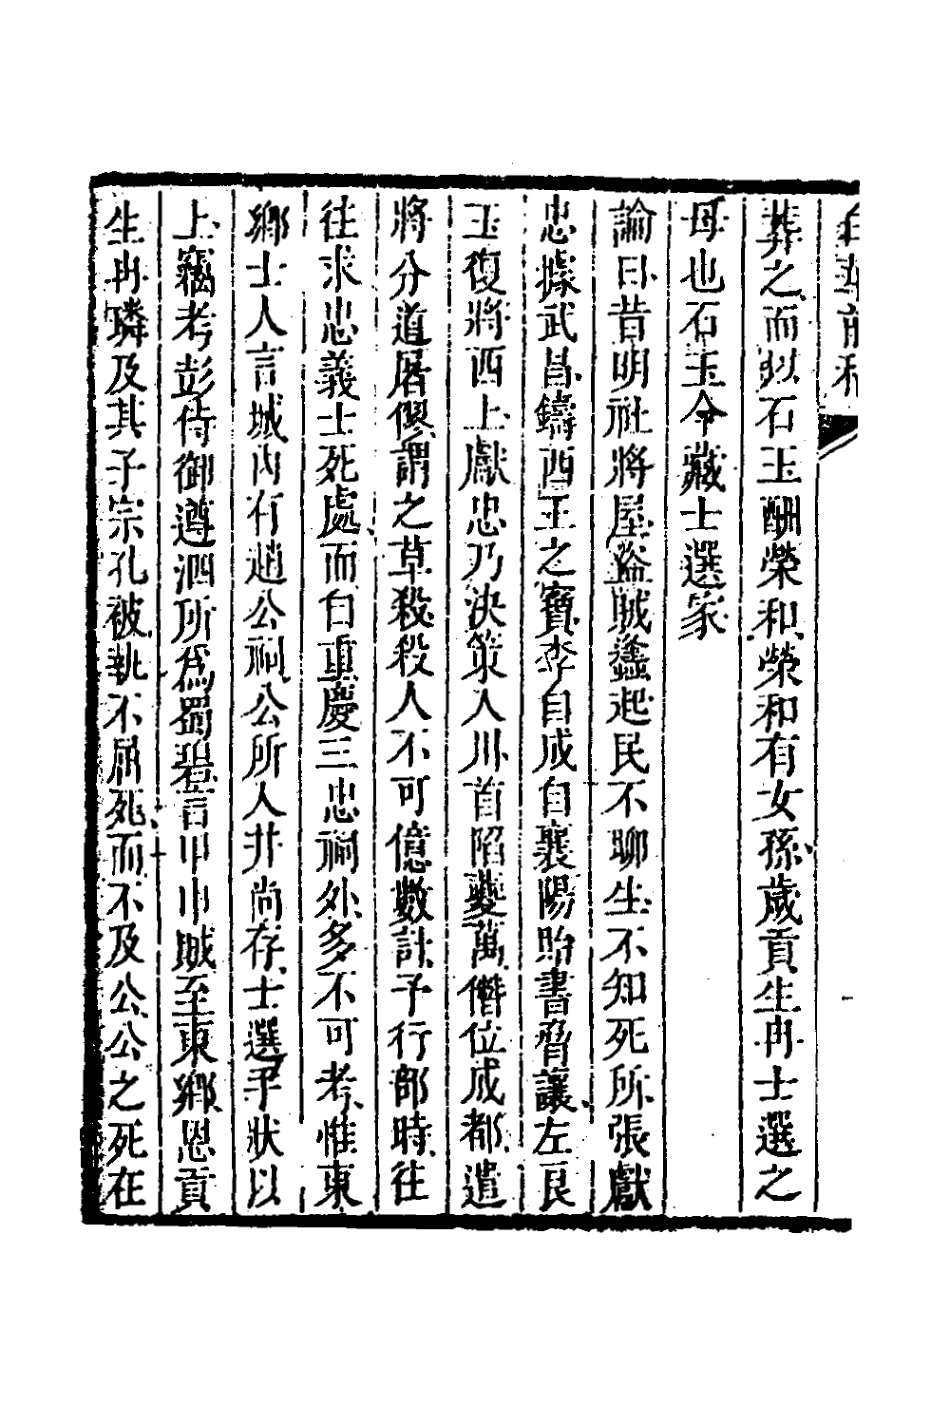 葬之而以石玉酬榮和榮和有女孫歲貢生冉士選之
母也石玉今藏士選家
論曰昔明社將屋盜賊蠭起民不聊生不知死所張獻
忠據武昌鑄西王之寶李自成自襄陽貽書脅讓左良
玉復將西上獻忠乃決策入川首陷夔萬僭位成都遣
將分道屠僇謂之草殺殺人不可億數計予行部時往
往求忠義士死處而自重慶三忠祠外多不可考惟東
鄉士人言城內有趙公祠公所入井尚存士選予狀以
上竊考彭侍御遵泗所爲蜀碧言甲申賊至東鄉恩貢
生冉璘及其子宗孔被執不屈死而不及公公之死在